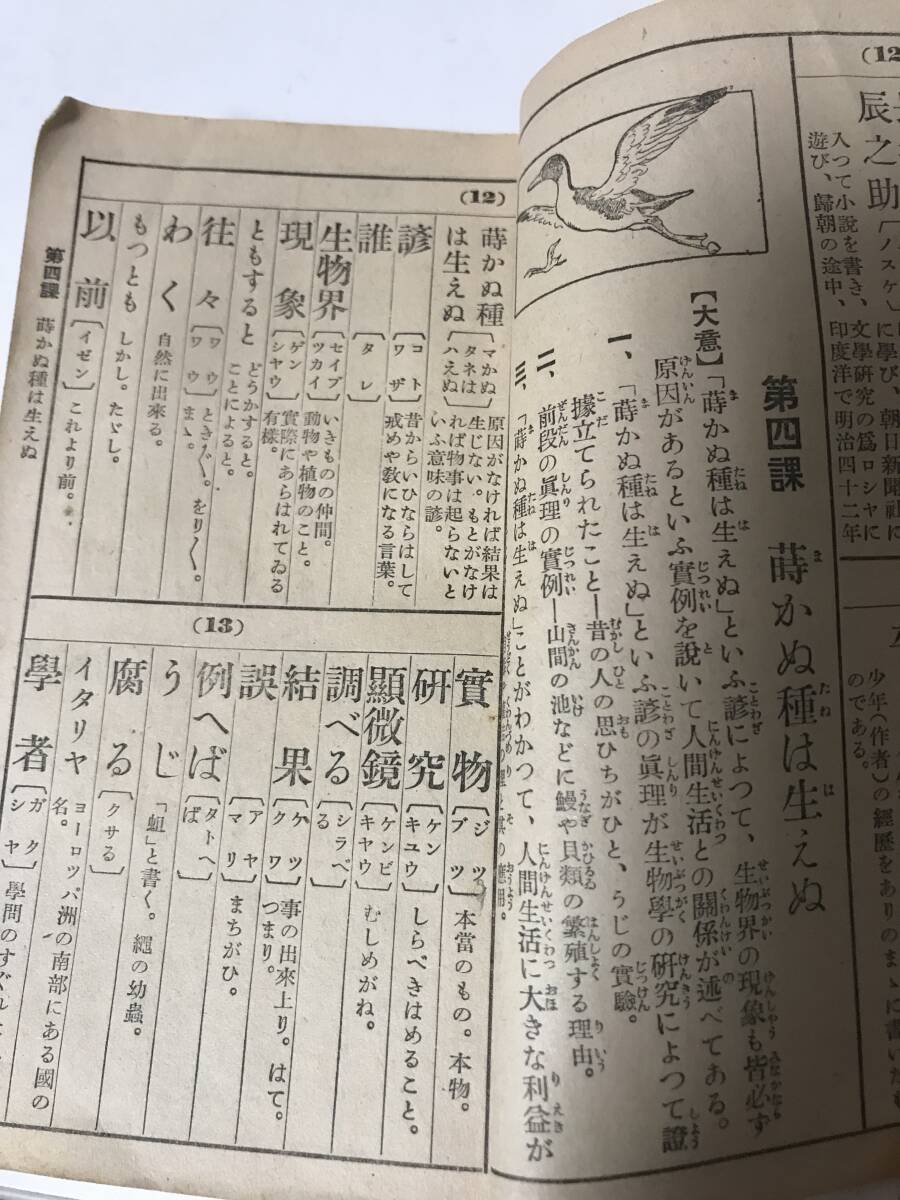 (12
辰
之
助
〔ノスケ〕
入つて小説を書き、文學研究の爲ロシヤに
遊び、歸朝の途中、印度洋で明治四十二年
少年(作者)の經歴をありのまゝに書いた
のである。
第四課 蒔かぬ種は生えぬ
【大意】「蒔かぬ種は生えぬ」といふ諺によつて、生物界の現象も皆必ず
原因があるといふ實例を說いて人間生活との關係が述べてある。
一、「蒔かぬ種は生えぬ」といふ諺の眞理が生物學の硏究によつて證
據立てられたこと―昔の人の思ひちがひと、うじの實驗。
二、前段の眞理の實例―山間の池などに鰻や貝類の繁殖する理由。
三、「蒔かぬ種は生えぬ」ことがわかつて、人間生活に大きな利益が
(12)
蒔かぬ種は生えぬ〔マかぬタネはハえぬ〕原因がなければ結果は生じない。もとがなければ物事は起らないといふ意味の諺。
諺〔コトワザ〕昔からいひならはして戒めや敎になる言葉。
誰〔タレ〕
生物界〔セイブツカイ〕いきものの仲間。動物や植物のこと。
現象〔ゲンシヤウ〕實際にあらはれてゐる有樣。
ともすると どうかすると。ことによると。
往々〔ワウワウ〕ときどき。をり〱。まゝ。
わく 自然に出來る。
もつとも しかし。たゞし。
以前〔イゼン〕これより前。
第四課 蒔かぬ種は生えぬ
(13)
實物〔ジツブツ〕本當のもの。本物。
硏究〔ケンキユウ〕しらべきはめること。
顯微鏡〔ケンビキヤウ〕むしめがね。
調べる〔シラベる〕
結果〔ケツクワ〕事の出來上り。はて。つまり。
誤〔アヤマリ〕まちがひ。
例へば〔タトヘば〕
うじ 「蛆」と書く。繩の幼蟲。
腐る〔クサる〕
イタリヤ ヨーロッパ洲の南部にある國の名。
學者〔ガクシヤ〕學問のすぐれ